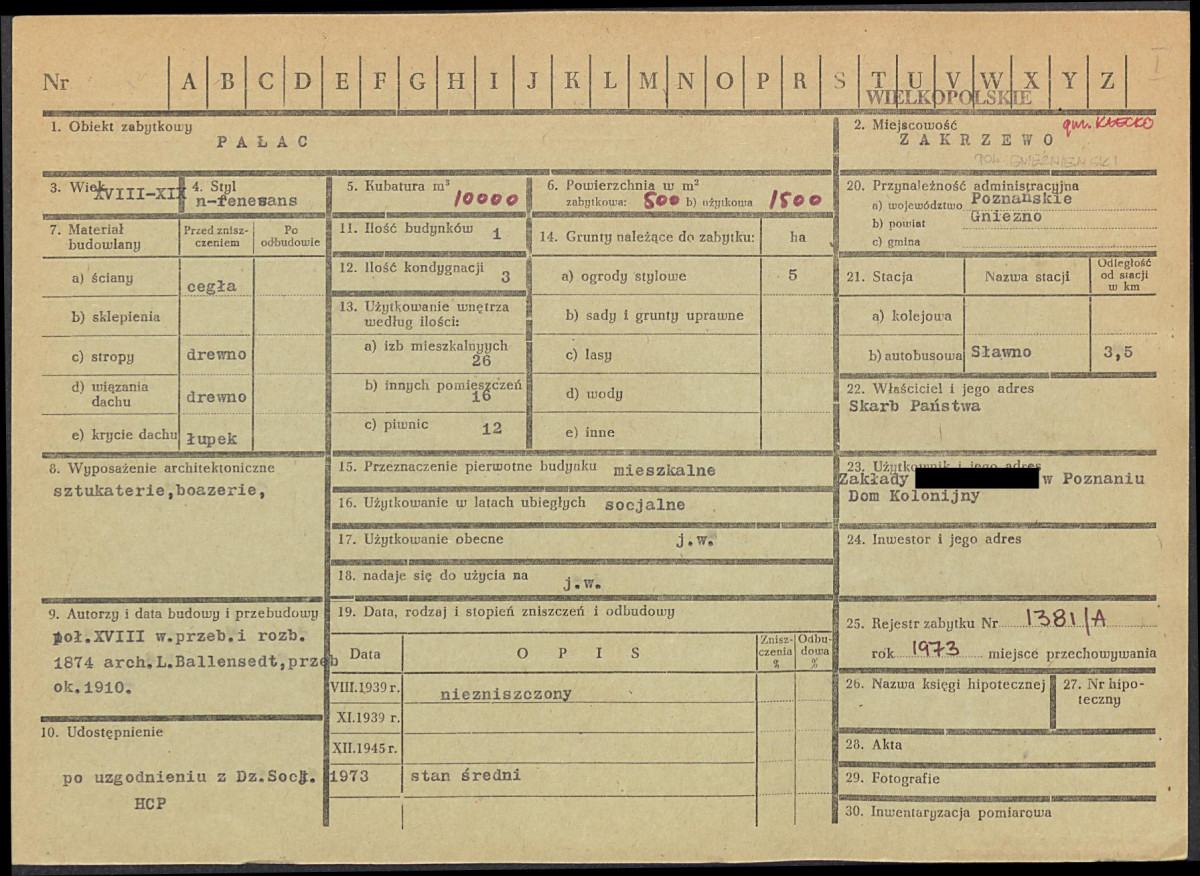 Nr A B C D E F G H I J K L M N O P R S T U V W X Y Z
I
WIELKOPOLSKIE
1. Obiekt zabytkowy
PAŁAC
2. Miejscowość
gm. KŁECKO
ZAKRZEWO
GNIEŹNIEŃSKI
3. Wiek
XVIII-XIX
4. Styl
n-renesans
5. Kubatura m³
10000
6. Powierzchnia w m²
zabytkowa: 500 b) użytkowa 1500
20. Przynależność administracyjna
a) województwo Poznańskie
b) powiat Gniezno
c) gmina
7. Materiał budowlany
Przed znisz-
czeniem
Po
odbudowie
a) ściany cegła
b) sklepienia
c) stropy drewno
d) wiązania dachu drewno
e) krycie dachu łupek
11. Ilość budynków 1
12. Ilość kondygnacji 3
13. Użytkowanie wnętrza
według ilości:
a) izb mieszkalnyych
26
b) innych pomieszczeń
16
c) piwnic 12
14. Grunty należące do zabytku: ha
a) ogrody stylowe 5
b) sady i grunty uprawne
c) lasy
d) wody
e) inne
21. Stacja Nazwa stacji
Odległość
od stacji
w km
a) kolejowa
b) autobusowa Sławno 3,5
22. Właściciel i jego adres
Skarb Państwa
8. Wyposażenie architektoniczne
sztukaterie,boazerie,
15. Przeznaczenie pierwotne budynku mieszkalne
16. Użytkowanie w latach ubiegłych socjalne
17. Użytkowanie obecne j.w.
18. nadaje się do użycia na j.w.
23. Użytkownik i jego adres
Zakłady w Poznaniu
Dom Kolonijny
24. Inwestor i jego adres
9. Autorzy i data budowy i przebudowy
poł.XVIII w.przeb.i rozb.
1874 arch.L.Ballensedt,przeb
ok.1910.
10. Udostępnienie
po uzgodnieniu z Dz.Socj.
HCP
19. Data, rodzaj i stopień zniszczeń i odbudowy
Data OPIS
Znisz-
czenia
%
Odbu-
dowa
%
VIII.1939 r. niezniszczony
XI.1939 r.
XII.1945 r.
1973 stan średni
25. Rejestr zabytku Nr 1381/A
rok 1973 miejsce przechowywania
26. Nazwa księgi hipotecznej
27. Nr hipo-
teczny
28. Akta
29. Fotografie
30. Inwentaryzacja pomiarowa